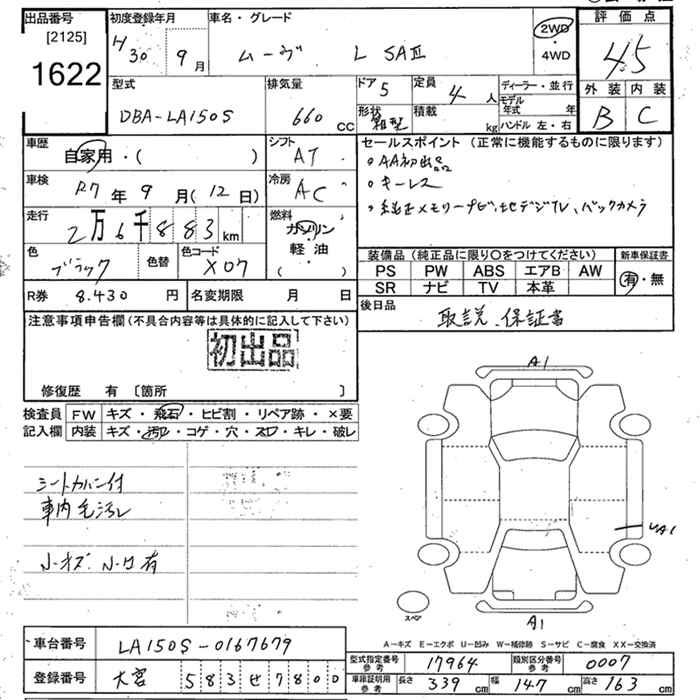 出品番号 初度登録年月 車名・グレード 評価点
[2125]
1622
H30 9月 ムーヴ L SAⅢ 2WD・4WD 4.5
型式 排気量 ドア 5 定員 4人 ディーラー・並行 外装 内装
DBA-LA150S 660cc 形状 箱型 積載 kg モデル年式 年 B C
ハンドル 左・右
車歴 自家用・( ) シフト AT セールスポイント(正常に機能するものに限ります)
・AA初出品
車検 R7年9月(12日) 冷房 AC ・キーレス
・純正メモリーナビ、地デジTV、バックカメラ
走行 2万6千883km 燃料 ガソリン 軽・油 ( )
色 ブラック 色替 色コード X07 装備品(純正品に限り○をつけてください) 新車保証書
PS PW ABS エアB AW 有・無
SR ナビ TV 本革
R券 8.430円 名変期限 月 日 後日品
取説、保証書
注意事項申告欄(不具合内容等は具体的に記入して下さい)
初出品
修復歴 有〔箇所 〕
A1
検査員 FW キズ・飛石・ヒビ割・リペア跡・×要
記入欄 内装 キズ・汚レ・コゲ・穴・スレ・キレ・破レ
シートカバー付
車内毛汚レ
小キズ 小凹有
UA1
スペア
A1
A-キズ E-エクボ U-凹み W-補修跡 S-サビ C-腐食 XX-交換済
車台番号 LA150S-0167679
型式指定番号 参考 17964 類別区分番号 参考 0007
登録番号 大宮 583せ7800
車庫証明用 参考 長さ 339cm 幅 147cm 高さ 163cm